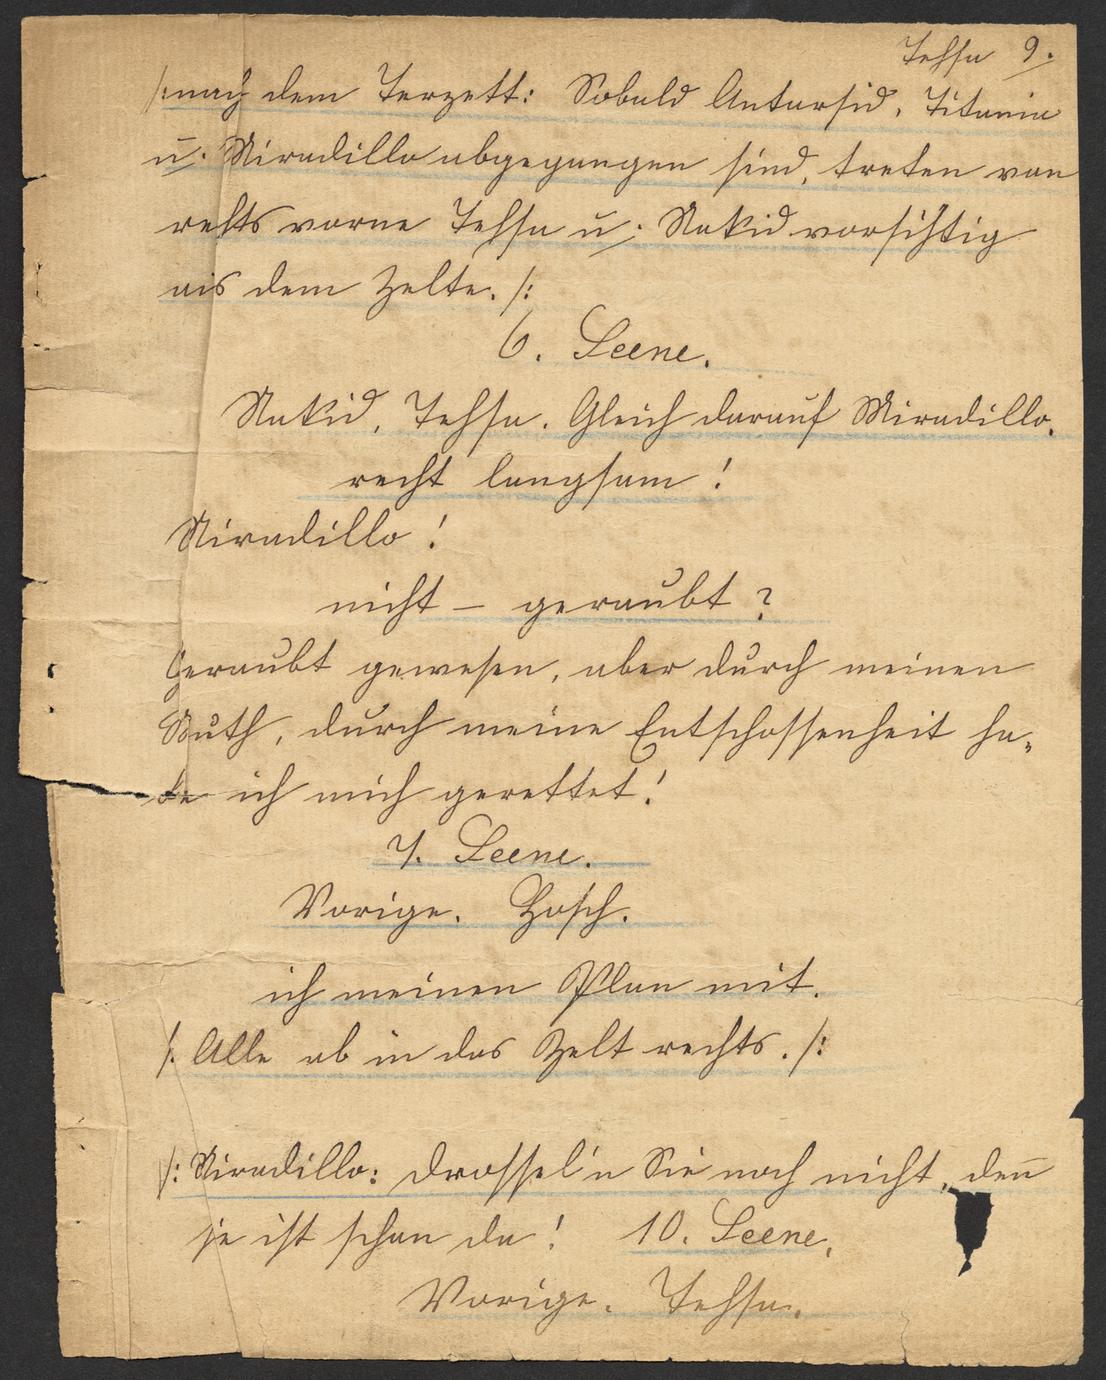 Tessa 9.
/: nach dem Terzett: Sobald Antarsid, Titania
u. Miradillo abgegangen sind, treten von
rechts vorne Tessa u: Nakid vorsichtig
aus dem Zelte. /:
6. Scene.
Nakid, Tessa. Gleich darauf Miradillo.
recht langsam!
Miradillo!
nicht – geraubt?
Geraubt gewesen, aber durch meinen
Muth, durch meine Entschossenheit ha-
be ich mich gerettet!
7. Scene.
Vorige. Zosch.
ich meinen Plan mit.
/: Alle ab in das Zelt rechts. /:
/: Miradillo: drossel'n Sie noch nicht, den̄
sie ist schon da! 10. Scene.
Vorige. Tessa.